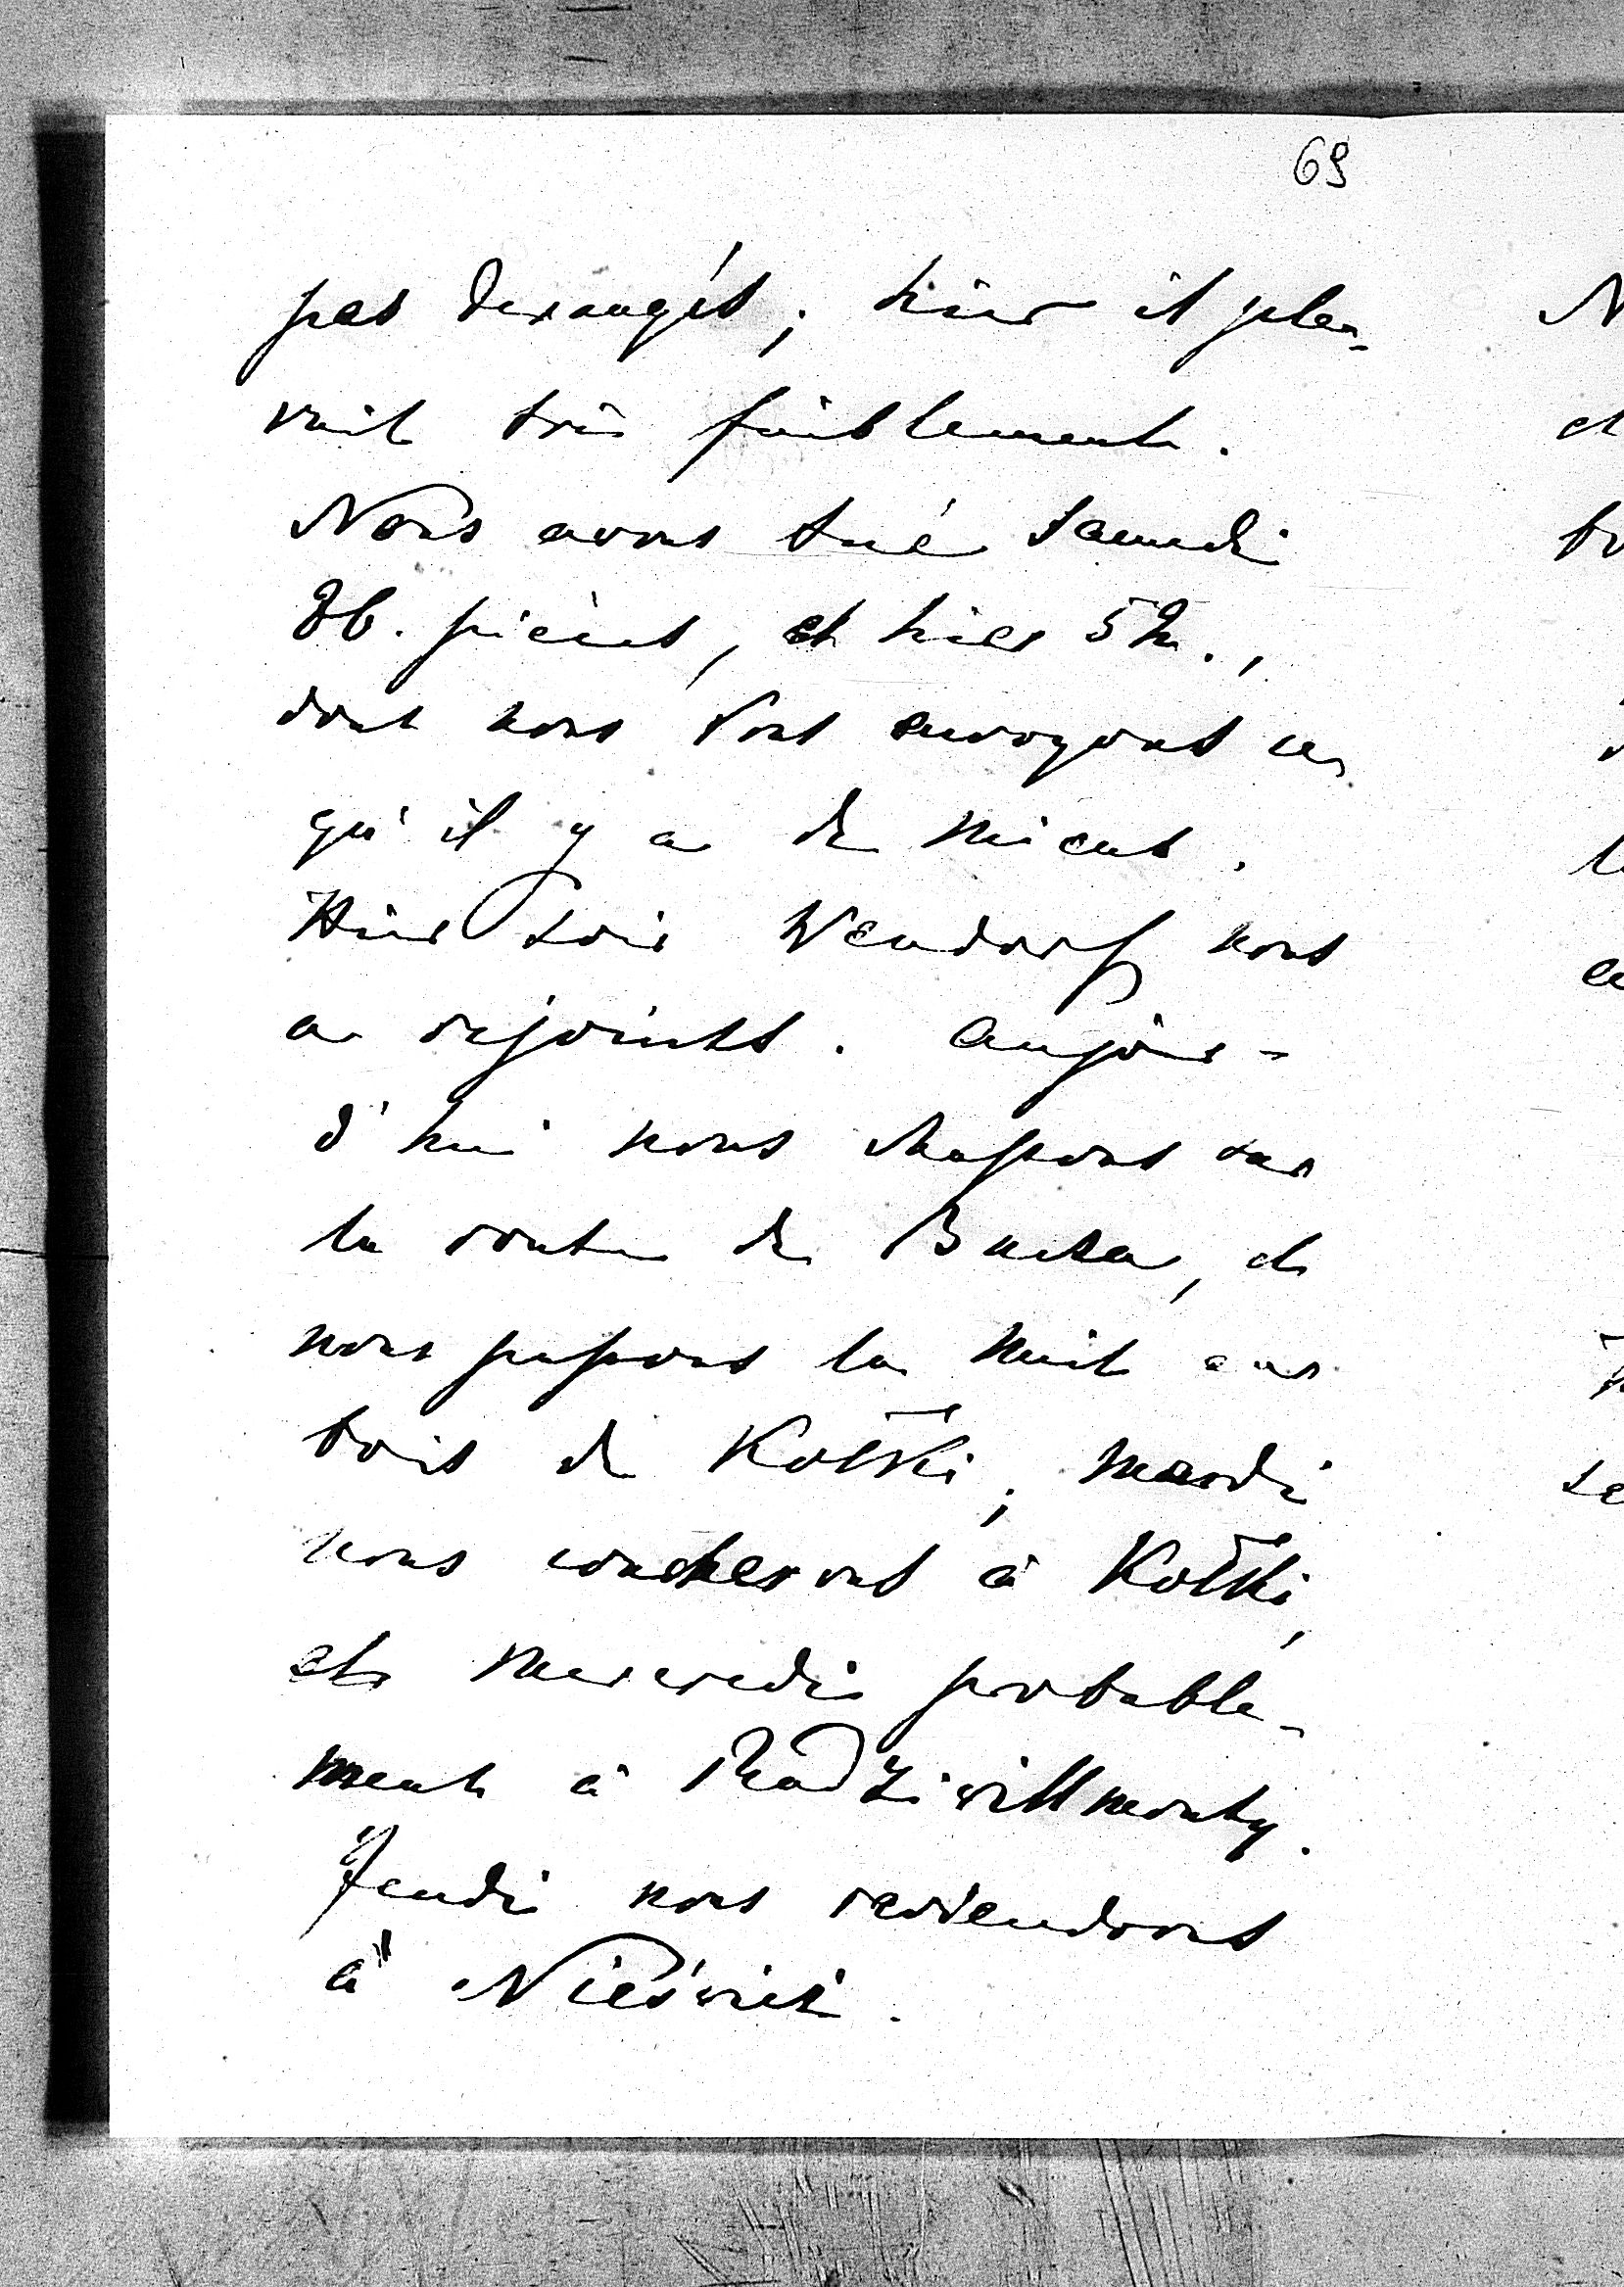 69
pas derangés; hier il pleu-
vait très faiblement.
Nous avons tué samedi
36. pièces, et hier 52.,
dont nous Vous envoyons ce
qu'il y a de mieux.
Hier soir Wendorff nous
a rejoints. Aujour-
d'hui nous chassons sur
la route de Bucza, et
nous passons la nuit aux
bois de Kołki; mardi
nous coucherons à Kołki,
et mercredi probable-
ment à Radziwillmonty.
Jeudi nous reviendrons
à Nieśwież.